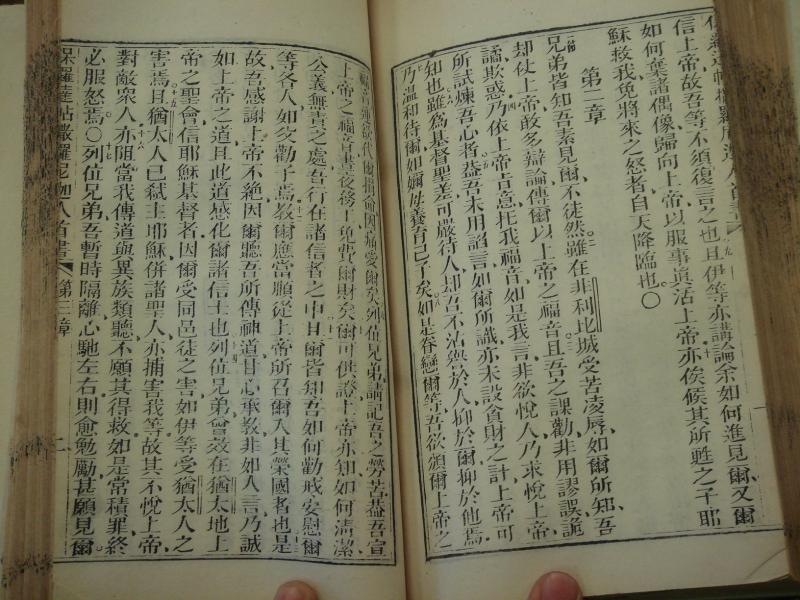 信上帝故吾等不須復言之也且伊等亦講論余如何進見爾又爾
如何棄諸偶像歸向上帝以服事眞活上帝亦俟候其所甦之子耶
穌救我免將來之怒者自天降臨也〇
第二章
兄弟皆知吾素見爾不徒然雖在非利比城受苦凌辱如爾所知吾
却仗上帝敢多辯論傳爾以上帝之福音且吾之課勸非用謬誤詭
譎欺惑乃依上帝肯意托我福音如是我言非欲悅人乃求悅上帝
所試煉吾心者蓋吾未用諂言如爾所識亦未設貪財之計上帝可
知也雖為基督聖差可嚴待人却吾不沽譽於人抑於爾抑於他焉
乃溫和待爾如嫺母養育己子矣如是眷戀爾等吾欲頒爾上帝之
福音連欲代爾捐命因痛愛爾矣列位兄弟請記吾之勞苦蓋吾宣
上帝之福音晝夜務工免費爾財矣爾可供證上帝亦知如何清潔
公義無責之處吾行在諸信者之中且爾皆知吾如何勸戒安慰爾
等各人如父勸子焉敎爾應當願從上帝所召爾入其榮國者也是
故吾感謝上帝不絕因爾聽吾所傳神道甘心承敎非如人言乃誠
如上帝之道且此道感化爾諸信士也列位兄弟曾效在猶太地上
帝之聖會信耶穌基督者因爾受同邑徒之害如伊等受猶太人之
害焉且猶太人已弒主耶穌併諸聖人亦捕害我等故其不悅上帝
對敵衆人亦阻當我傳道與異族類聽不願其得救如是常積罪終
必服怒焉〇列位兄弟吾暫時隔離心馳左右則愈勉勵甚願見爾
第三章
二